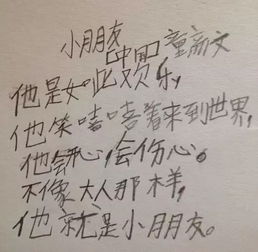 小朋友
童商文
他是如此欢乐,
他笑嘻嘻着来到世界,
他会开心会伤心。
不像大人那样,
他就是小朋友。